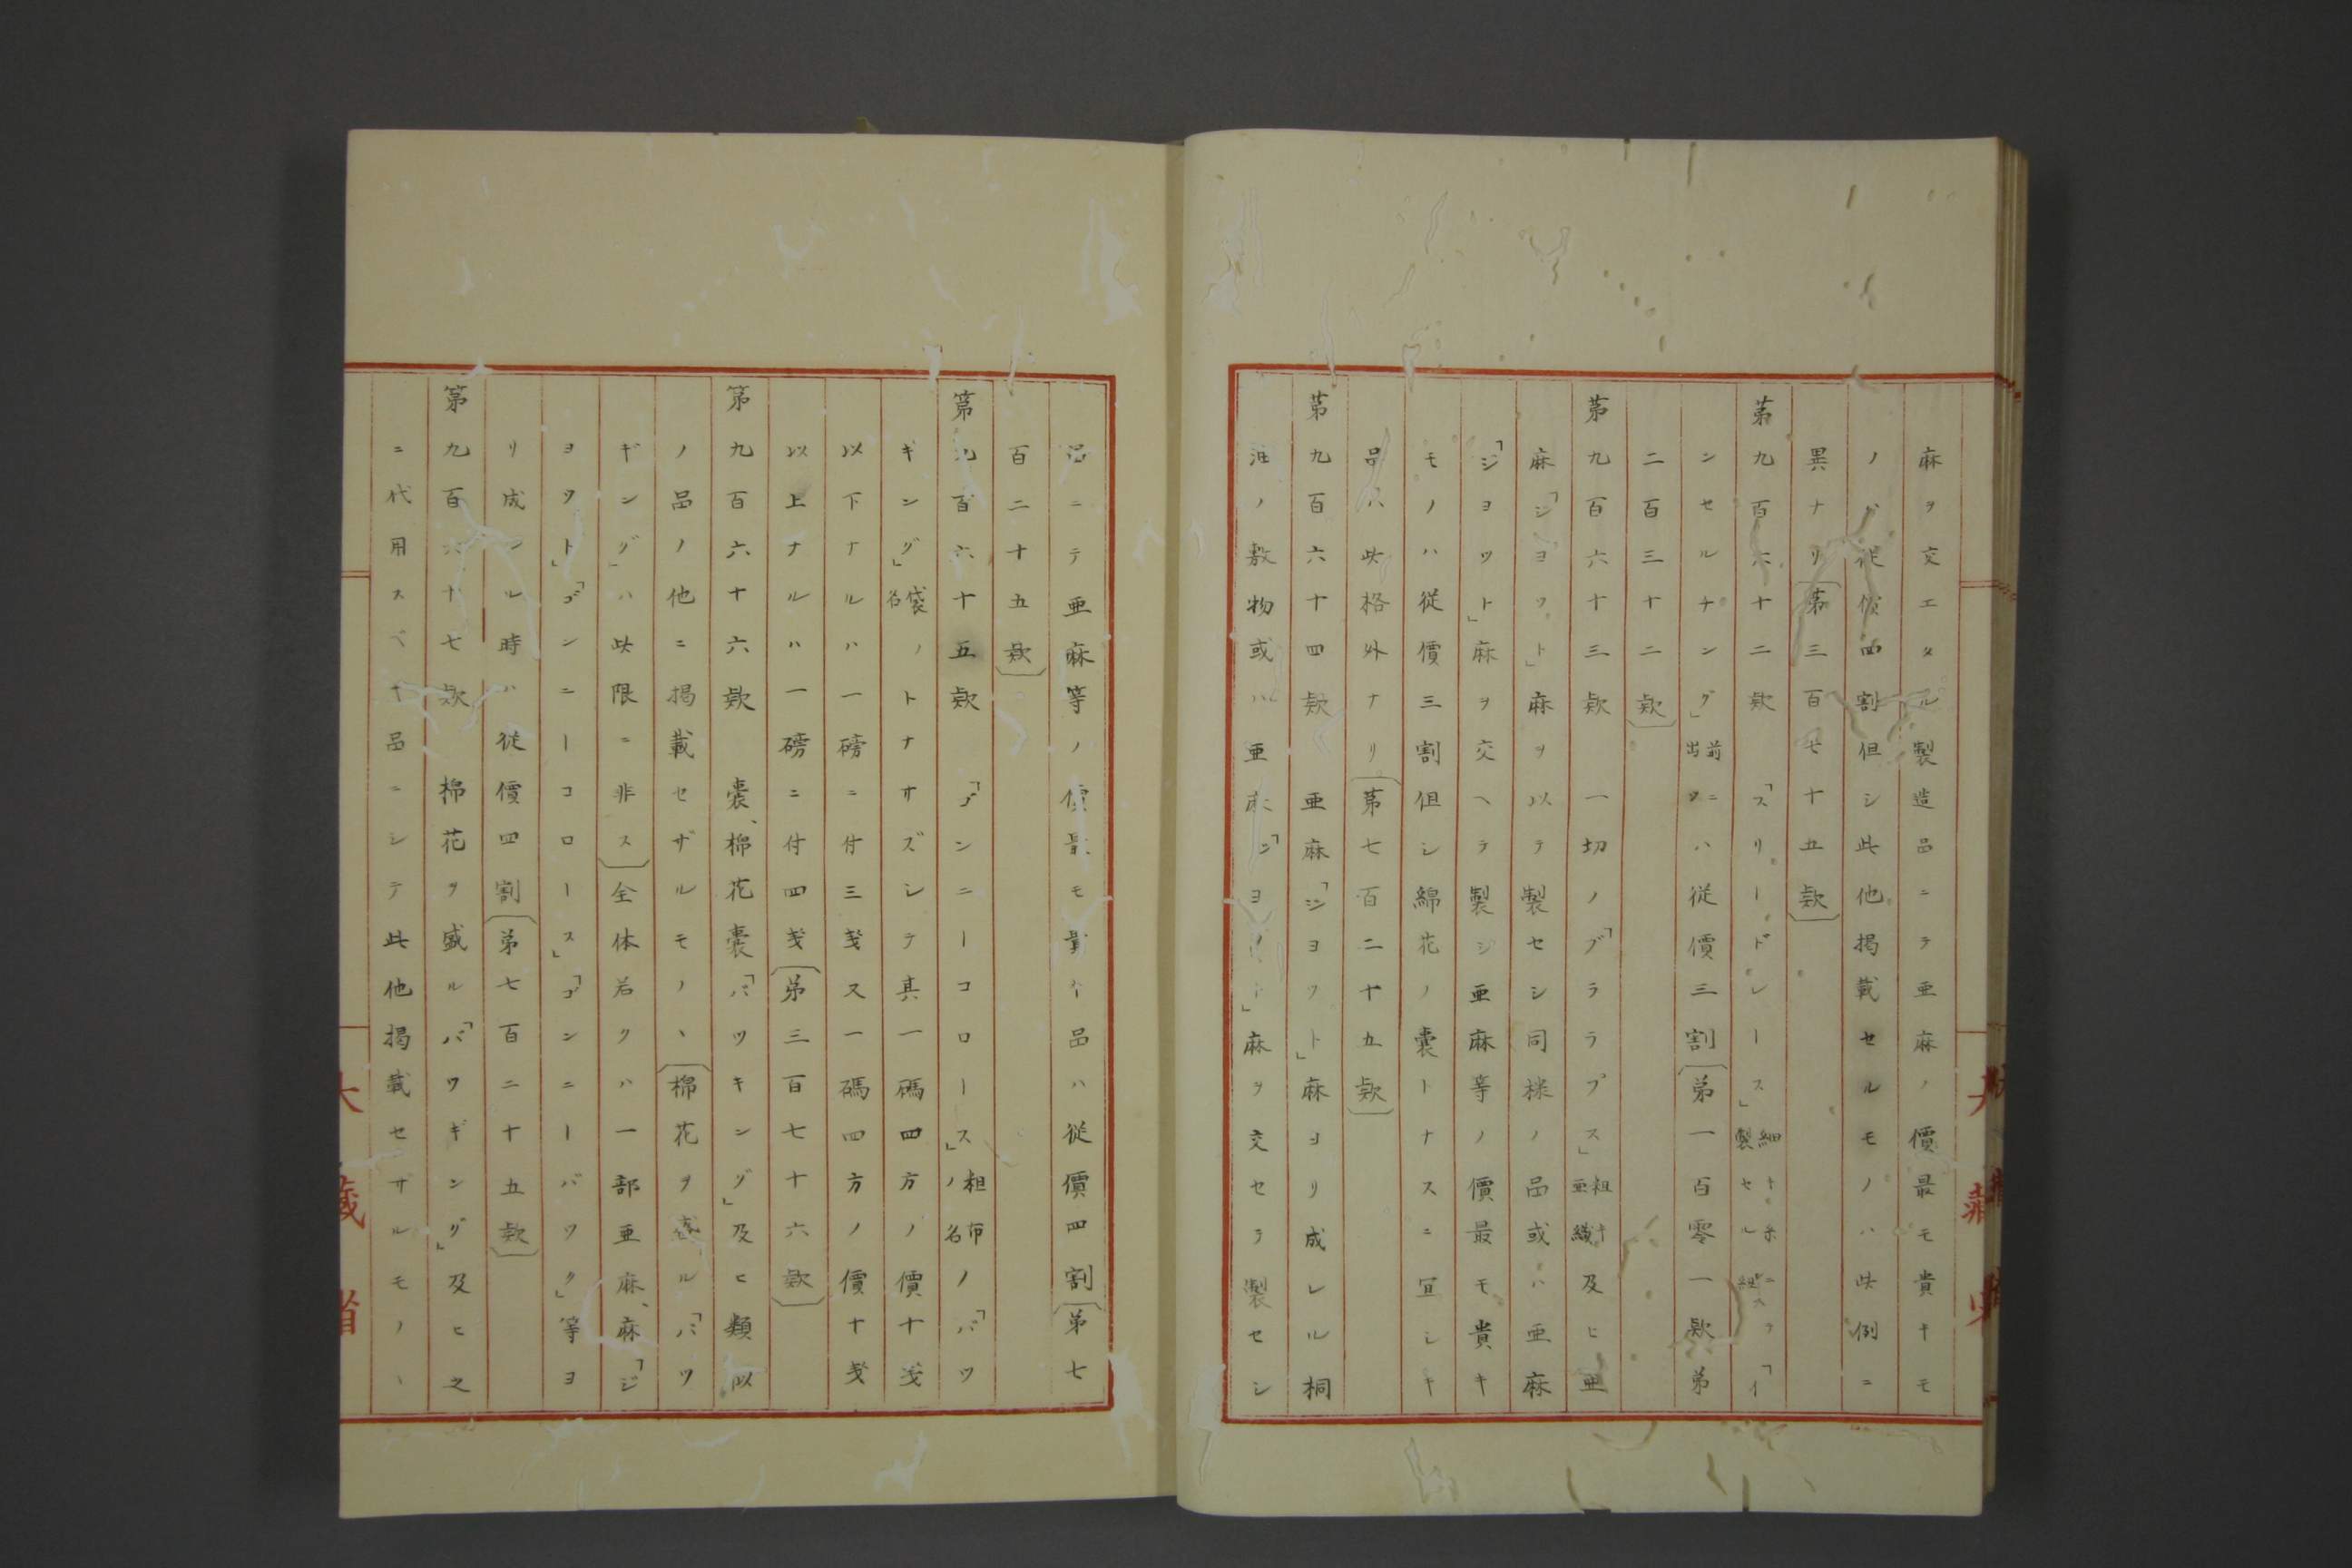 麻ヲ交エタル製造品ニテ亜麻ノ價最モ貴キモ
ノハ従價四割但シ此他掲載セルモノハ此例ニ
異ナリ〔第三百七十五款〕
第九百六十二款 「スリードレース」細キ糸ニテ製セル紐「イ
ンセルチング」前ニ出タハ従價三割〔第一百零一款第
二百三十二款〕
第九百六十三款 一切ノ「ブララプス」粗キ亜織及ヒ亜
麻「ジヨウト」麻ヲ以テ製セシ同様ノ品或ハ亜麻
「ジヨツト」麻ヲ交ヘテ製ジ亜麻等ノ價最モ貴キ
モノハ従價三割但シ綿花ノ嚢トナスニ冝シキ
品ハ此格外ナリ〔第七百二十五款〕
第九百六十四款 亜麻「ジヨツト」麻ヨリ成レル桐
油ノ敷物或ハ亜麻「ジヨツト」麻ヲ交セテ製セシ
品ニテ亜麻等ノ價最モ貴キ品ハ従價四割〔第七
百二十五款〕
第九百六十五款 「ゴンニーコロース」粗布ノ名ノ「バツ
キング」袋名ノトナサズシテ其一碼四方ノ價十戔
以下ナルハ一磅ニ付三戔ス一碼四方ノ價十戔
以上ナルハ一磅ニ付四戔〔第三百七十六款〕
第九百六十六款 嚢、棉花嚢「バツキング」及ヒ類似
ノ品ノ他ニ掲載セザルモノヽ〔棉花ヲ盛ル「バツ
ギング」ハ此限ニ非ス〕全体若クハ一部亜麻、麻「ジ
ヨツト」「ゴンニーコロース」「ゴンニーバツク」等ヨ
リ成シル時ハ従價四割〔第七百二十五款〕
第九百六十七款 棉花ヲ盛ル「バワギング」及ヒ之
ニ代用スベキ品ニシテ此他掲載セサルモノヽ
大藏省